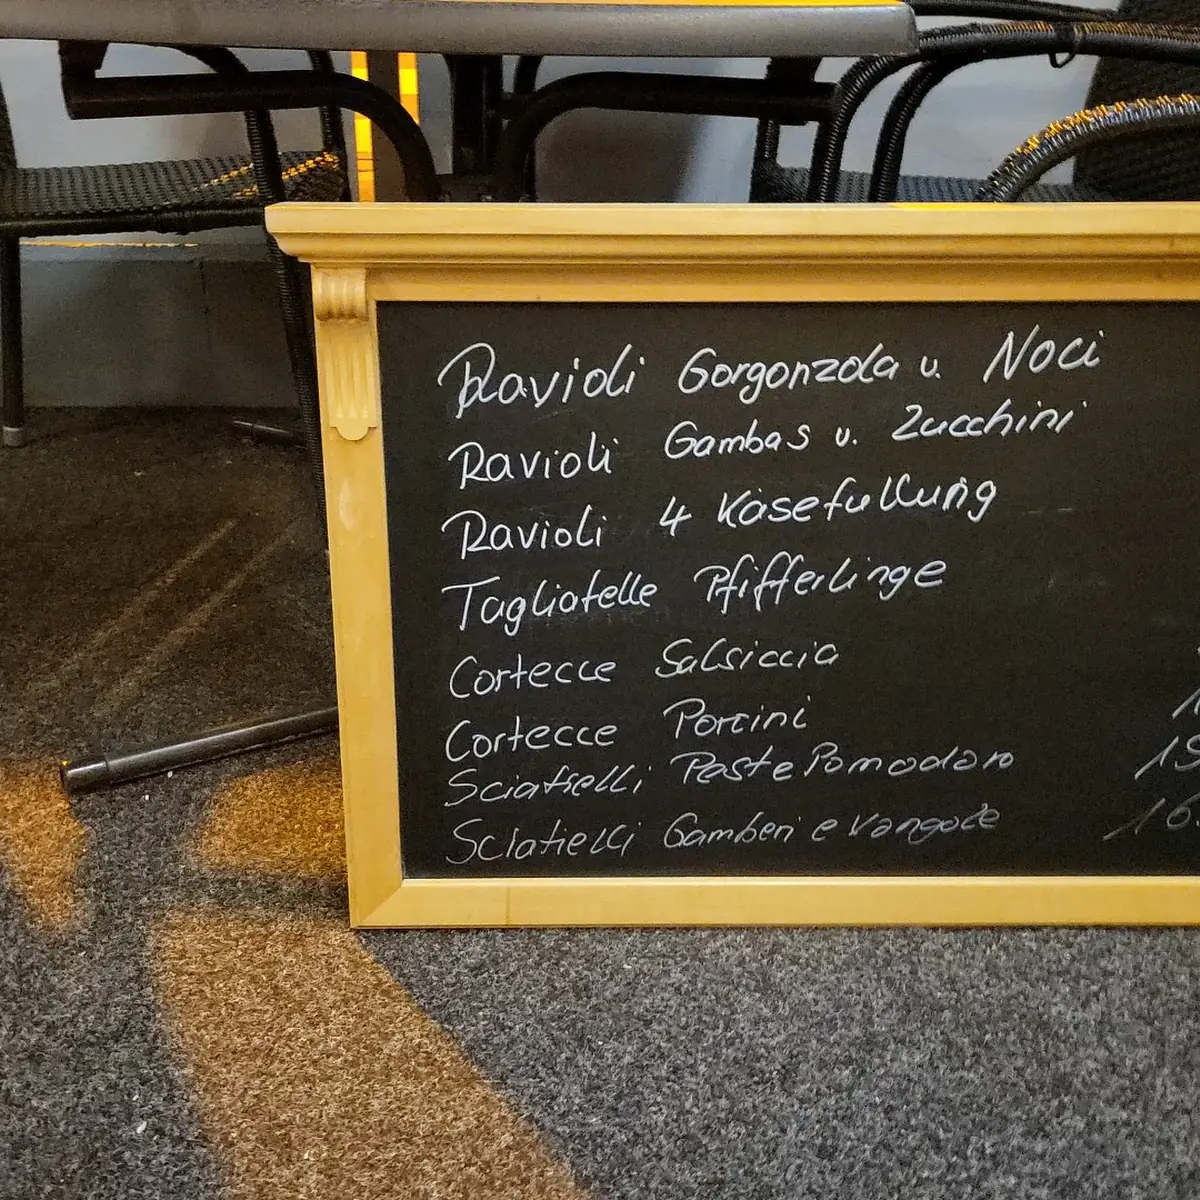 Ravioli Gorgonzola u. Noci
Ravioli Gambas u. Zucchini
Ravioli 4 Käsefüllung
Tagliatelle Pfifferlinge
Cortecce Salsiccia
Cortecce Porcini
Sciatielli Paste Pomodoro 15
Sciatielli Gamberi e Vongole 16